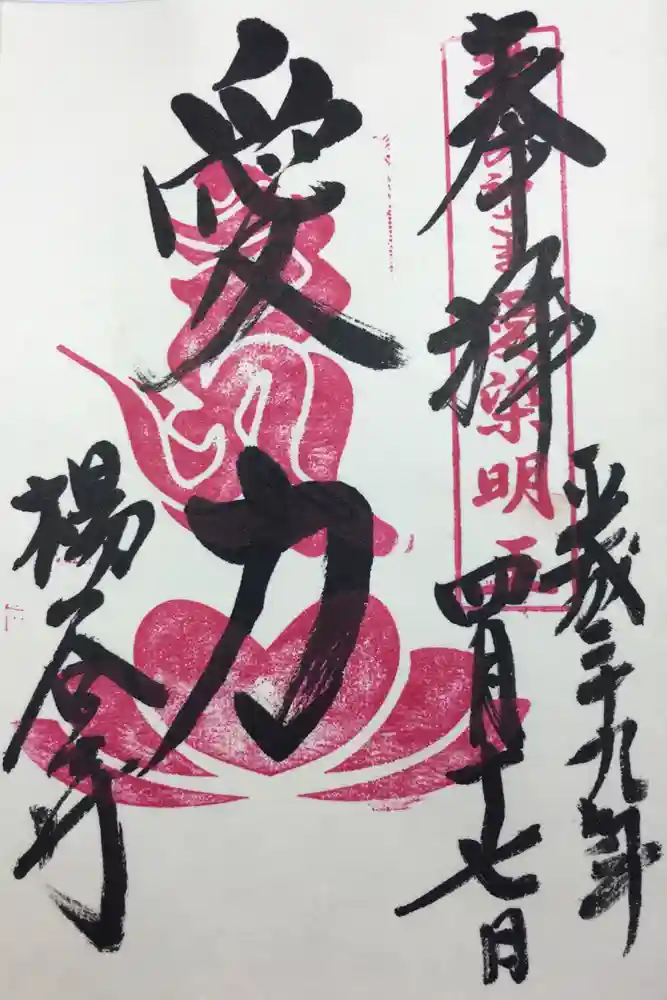 奉拝
愛染明王
平成二十九年
四月十七日
愛力
楊谷寺